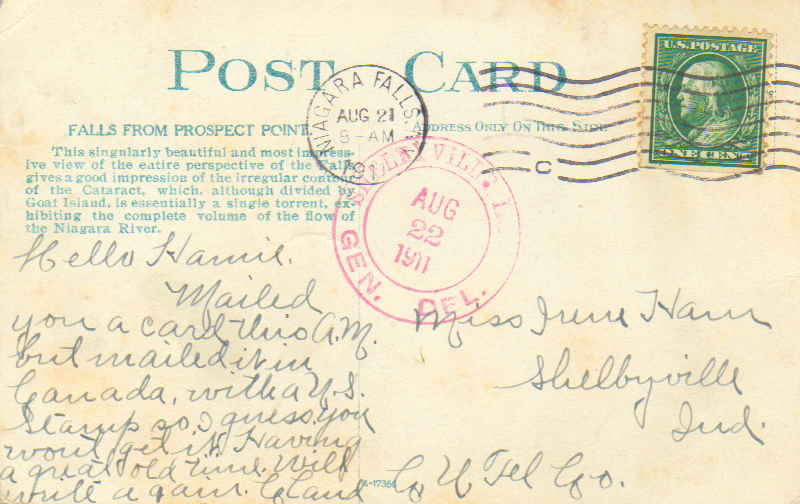 POST CARD
FALLS FROM PROSPECT POINT.
This singularly beautiful and most impress-
ive view of the entire perspective of the Falls
gives a good impression of the irregular contour
of the Cataract, which, although divided by
Goat Island, is essentially a single torrent, ex-
hibiting the complete volume of the flow of
the Niagara River.
ADDRESS ONLY ON THIS SIDE
NIAGARA FALLS
AUG 21
8-AM
C
U.S. POSTAGE
ONE CENT
AUG
22
1911
GEN. DEL.
Hello Hamie.
Mailed
you a card this A.M.
but mailed it in
Canada, with a U.S.
Stamp so I guess you
wont get it. Having
a great old time. Will
write again. Claud
Miss Irene Ham
Shelbyville
Ind.
C U Tel Co.